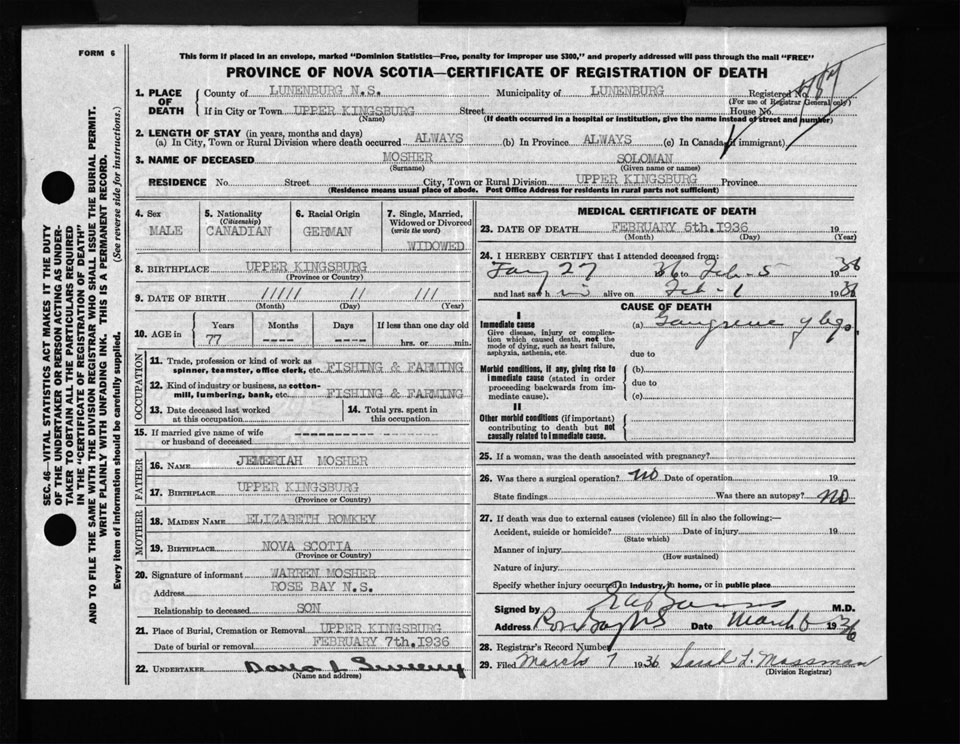 FORM 6
This form if placed in an envelope, marked "Dominion Statistics—Free, penalty for improper use $300," and properly addressed will pass through the mail "FREE"
PROVINCE OF NOVA SCOTIA—CERTIFICATE OF REGISTRATION OF DEATH
1. PLACE OF DEATH
County of LUNENBURG N.S. Municipality of LUNENBURG Registered No.
(For use of Registrar General only)
If in City or Town UPPER KINGSBURG Street House No.
(Name) (If death occurred in a hospital or institution, give the name instead of street and number)
2. LENGTH OF STAY (in years, months and days)
(a) In City, Town or Rural Division where death occurred ALWAYS (b) In Province ALWAYS (c) In Canada (if immigrant)
3. NAME OF DECEASED MOSHER SOLOMAN
(Surname) (Given name or names)
RESIDENCE No. Street City, Town or Rural Division UPPER KINGSBURG Province
(Residence means usual place of abode. Post Office Address for residents in rural parts not sufficient)
4. Sex
MALE
5. Nationality
(Citizenship)
CANADIAN
6. Racial Origin
GERMAN
7. Single, Married, Widowed or Divorced
(write the word)
WIDOWED
8. BIRTHPLACE UPPER KINGSBURG
(Province or Country)
9. DATE OF BIRTH ///// // ///
(Month) (Day) (Year)
10. AGE in Years Months Days If less than one day old
77 ---- ---- hrs. or min.
OCCUPATION
11. Trade, profession or kind of work as
spinner, teamster, office clerk, etc. FISHING & FARMING
12. Kind of industry or business, as cotton-
mill, lumbering, bank, etc. FISHING & FARMING
13. Date deceased last worked
at this occupation
14. Total yrs. spent in
this occupation
15. If married give name of wife
or husband of deceased
FATHER
16. NAME JEMERIAH MOSHER
17. BIRTHPLACE UPPER KINGSBURG
(Province or Country)
MOTHER
18. MAIDEN NAME ELIZABETH ROMKEY
19. BIRTHPLACE NOVA SCOTIA
(Province or Country)
20. Signature of informant WARREN MOSHER
Address ROSE BAY N.S.
Relationship to deceased SON
21. Place of Burial, Cremation or Removal UPPER KINGSBURG
Date of burial or removal FEBRUARY 7th.1936
22. UNDERTAKER
(Name and address)
MEDICAL CERTIFICATE OF DEATH
23. DATE OF DEATH FEBRUARY 5th.1936 19
(Month) (Day) (Year)
24. I HEREBY CERTIFY that I attended deceased from:
Jany 27 36 to Feb-5 1936
and last saw him alive on Feb-1 1936
CAUSE OF DEATH
I
Immediate cause
Give disease, injury or complica-
tion which caused death, not the
mode of dying, such as heart failure,
asphyxia, asthenia, etc.
(a) Gangrene of legs
due to
Morbid conditions, if any, giving rise to
immediate cause (stated in order
proceeding backwards from im-
mediate cause).
(b)
due to
(c)
II
Other morbid conditions (if important)
contributing to death but not
causally related to immediate cause.
25. If a woman, was the death associated with pregnancy?
26. Was there a surgical operation? NO Date of operation 19
State findings Was there an autopsy? NO
27. If death was due to external causes (violence) fill in also the following:—
Accident, suicide or homicide? Date of injury 19
(State which)
Manner of injury
(How sustained)
Nature of injury
Specify whether injury occurred in industry, in home, or in public place
Signed by M.D.
Address Rose Bay NS Date March 6 1936
28. Registrar's Record Number
29. Filed March 7 1936 Sarah L. Mossman
(Division Registrar)
SEC. 46—VITAL STATISTICS ACT MAKES IT THE DUTY
OF THE UNDERTAKER OR PERSON ACTING AS UNDER-
TAKER TO OBTAIN ALL THE PARTICULARS REQUIRED
IN THE "CERTIFICATE OF REGISTRATION OF DEATH"
AND TO FILE THE SAME WITH THE DIVISION REGISTRAR WHO SHALL ISSUE THE BURIAL PERMIT.
WRITE PLAINLY WITH UNFADING INK. THIS IS A PERMANENT RECORD.
Every item of information should be carefully supplied. (See reverse side for instructions.)